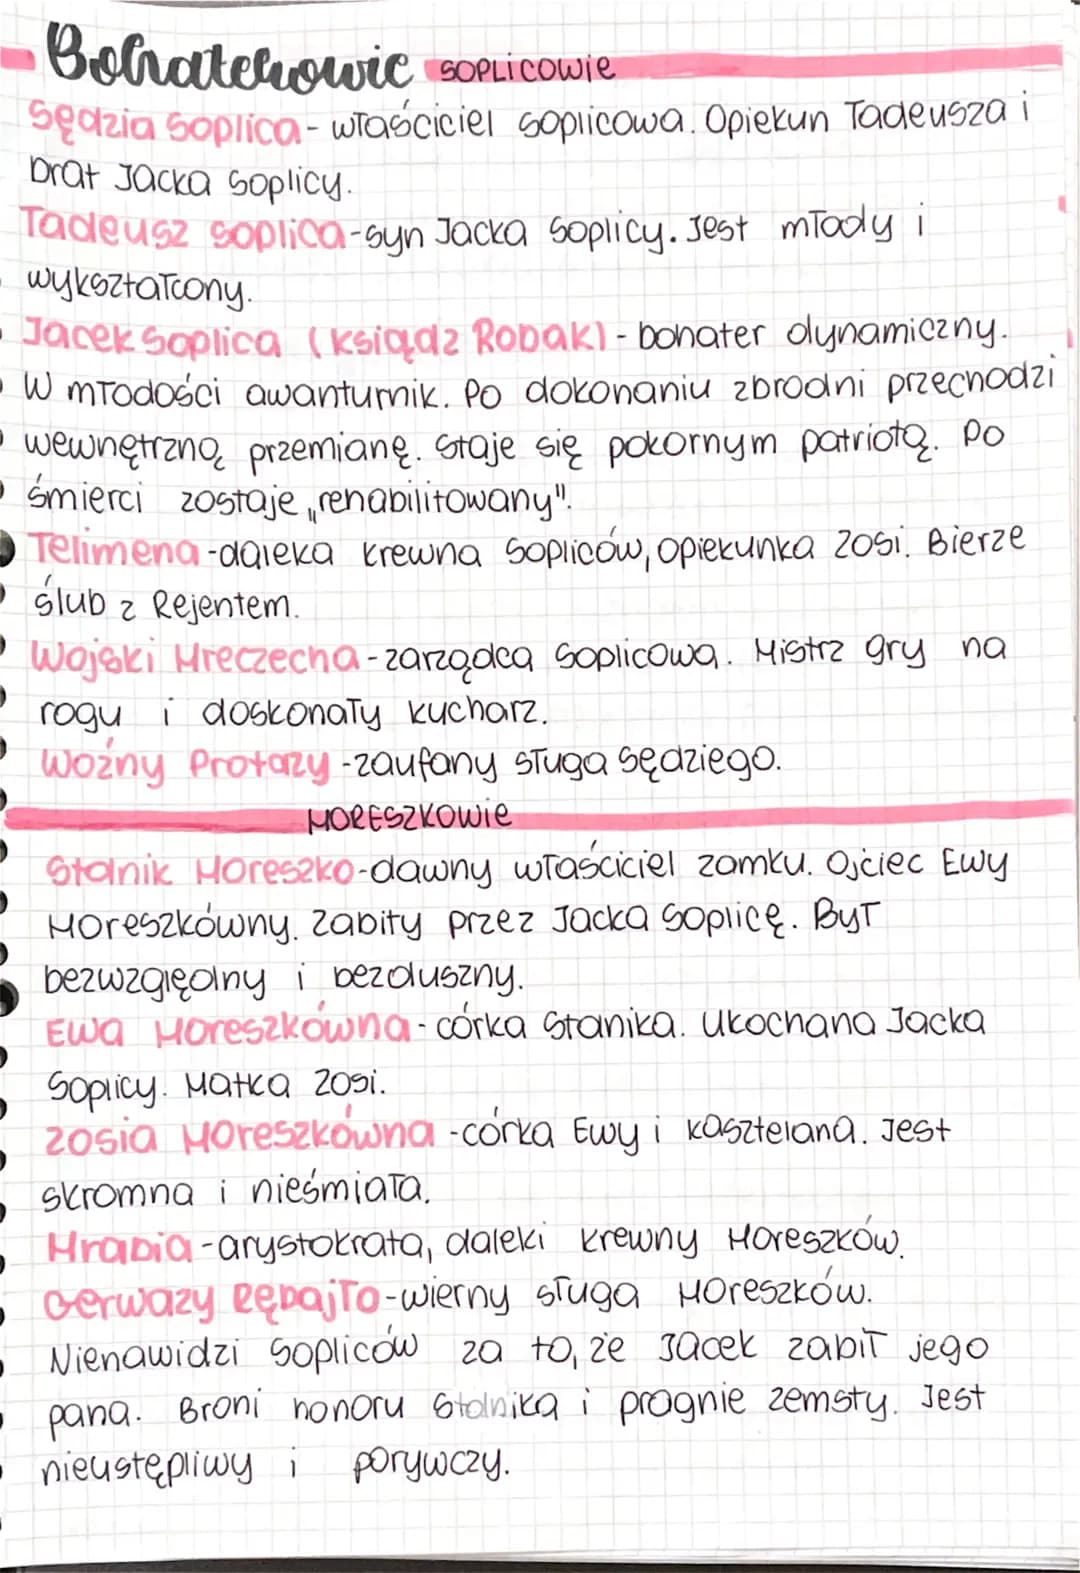 Bohaterowie SOPLICOWIE
Sędzia Soplica - właściciel Soplicowa. Opiekun Tadeusza i
brat Jacka Soplicy.
Tadeusz Soplica - syn Jacka Soplicy. Jest młody i
wykształcony.
Jacek Soplica (Ksiądz Robak) - bohater dynamiczny.
W młodości awanturnik. Po dokonaniu zbrodni przechodzi
wewnętrzną przemianę. Staje się pokornym patriotą. Po
śmierci zostaje „rehabilitowany".
Telimena - daleka krewna Sopliców, opiekunka Zosi. Bierze
ślub z Rejentem.
Wojski Hreczecha - zarządca Soplicowa. Mistrz gry na
rogu i doskonały kucharz.
Woźny Protazy - zaufany sługa Sędziego.
HORESZKOWIE
Stolnik Horeszko - dawny właściciel zamku. Ojciec Ewy
Horeszkówny. Zabity przez Jacka Soplicę. Był
bezwzględny i bezduszny.
Ewa Horeszkówna - córka Stanika. Ukochana Jacka
Soplicy. Matka Zosi.
Zosia Horeszkówna - córka Ewy i kasztelana. Jest
skromna i nieśmiała.
Hrabia - arystokrata, daleki krewny Horeszków.
Gerwazy Rębajło - wierny sługa Horeszków.
Nienawidzi Sopliców za to, że Jacek zabił jego
pana. Broni honoru Stolnika i pragnie zemsty. Jest
nieustępliwy i porywczy.